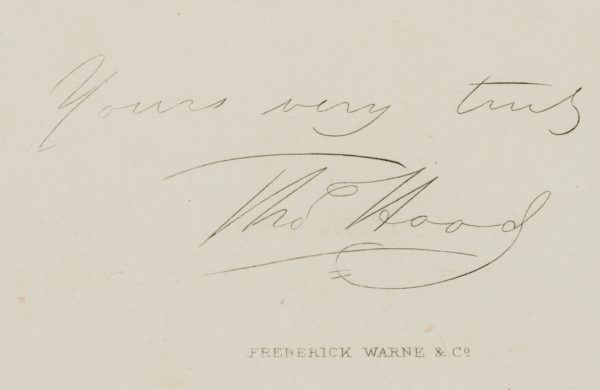 Yours very truly
Thos Hood
FREDERICK WARNE & Co